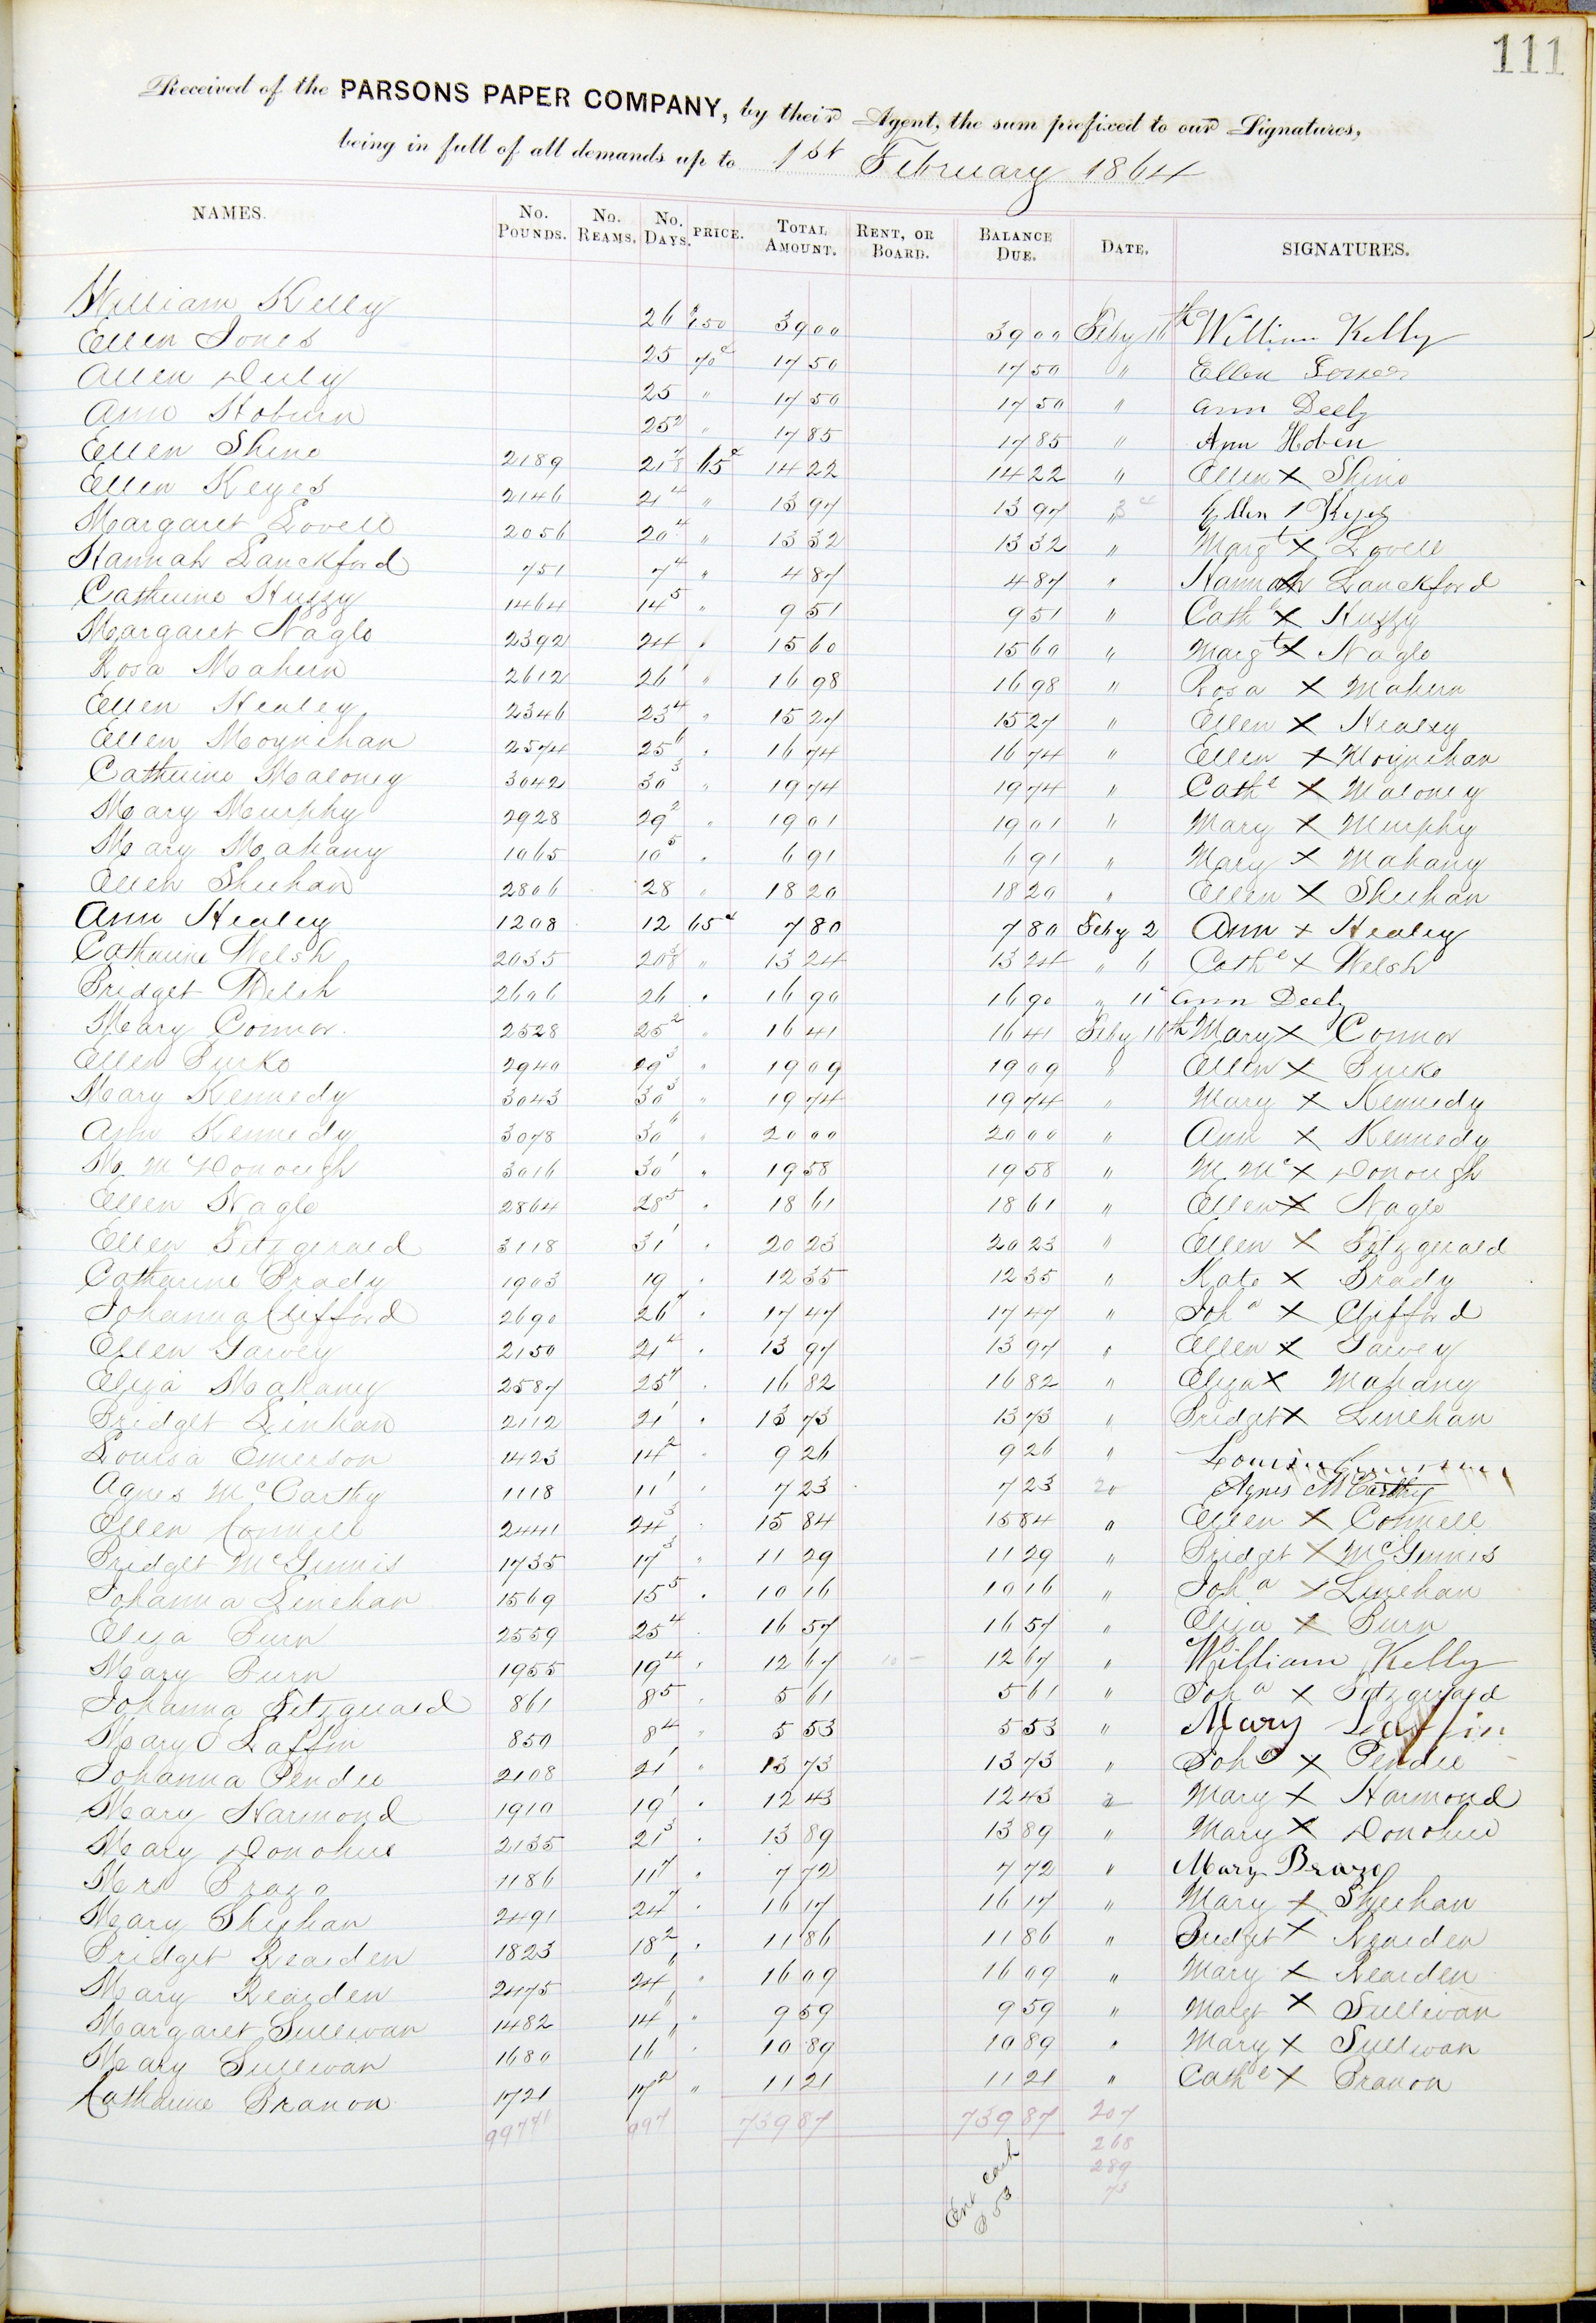 111
Received of the PARSONS PAPER COMPANY, by their Agent, the sum prefixed to our Signatures,
being in full of all demands up to 1st February 1864
NAMES. No. Pounds. No. Reams. No. Days. PRICE. Total Amount. Rent, or Board. Balance Due. Date. SIGNATURES.
William Kelly 26 $150 39 00 39 00 Feby 16th William Kelly
Ellen Jones 25 70c 17 50 17 50 " Ellen Jones
Ann Deely 25 " 17 50 17 50 " Ann Deely
Ann Hoburn 25 2 " 17 85 17 85 " Ann Hobin
Ellen Shine 2189 21 7/8 65c 14 22 14 22 " Ellen X Shine
Ellen Keyes 2146 21 4 " 13 97 13 97 " Ellen Keyes
Margaret Lovell 2056 20 4 " 13 32 13 32 " Margt X Lovell
Hannah Lanckford 751 7 4 " 4 87 4 87 " Hannah X Lanckford
Catherine Huzzy 1464 14 5 " 9 51 9 51 " Cathe X Huzzy
Margaret Nagle 2392 24 " 15 60 15 60 " Margt X Nagle
Rosa Mahern 2612 26 1 " 16 98 16 98 " Rosa X Mahern
Ellen Healey 2346 23 4 " 15 27 15 27 " Ellen X Healey
Ellen Moynihan 2574 25 6 " 16 74 16 74 " Ellen X Moynihan
Catherine Maloney 3042 30 3 " 19 74 19 74 " Cathe X Maloney
Mary Murphy 2928 29 2 " 19 01 19 01 " Mary X Murphy
Mary Mahany 1065 10 5 " 6 91 6 91 " Mary X Mahany
Ellen Sheehan 2806 28 " 18 20 18 20 " Ellen X Sheehan
Ann Healey 1208 12 65c 7 80 7 80 Feby 2 Ann X Healey
Catharine Welsh 2035 20 3/8 " 13 24 13 24 " 6 Cathe X Welsh
Bridget Welsh 2606 26 " 16 90 16 90 " 11 Ann Deely
Mary Connor 2528 25 2 " 16 41 16 41 Feby 16th Mary X Connor
Ellen Burke 2940 29 3 " 19 09 19 09 " Ellen X Burke
Mary Kennedy 3043 30 3 " 19 74 19 74 " Mary X Kennedy
Ann Kennedy 3078 30 6 " 20 00 20 00 " Ann X Kennedy
M. McDonough 3016 30 1 " 19 58 19 58 " M. Mc X Donough
Ellen Nagle 2864 28 5 " 18 61 18 61 " Ellen X Nagle
Ellen Fitzgerald 3118 31 1 " 20 23 20 23 " Ellen X Fitzgerald
Catharine Brady 1903 19 " 12 35 12 35 " Kate X Brady
Johanna Clifford 2690 26 7 " 17 47 17 47 " Joha X Clifford
Ellen Garvey 2150 21 4 " 13 97 13 97 " Ellen X Garvey
Eliza Mahany 2587 25 7 " 16 82 16 82 " Eliza X Mahany
Bridget Linhan 2112 21 1 " 13 73 13 73 " Bridget X Linehan
Louisa Emerson 1423 14 2 " 9 26 9 26 " Louisa Emerson
Agnes McCarthy 1118 11 1 " 7 23 7 23 20 Agnes McCarthy
Ellen Connell 2441 24 3 " 15 84 15 84 " Ellen X Connell
Bridget McGinnis 1735 17 3 " 11 29 11 29 " Bridget X McGinnis
Johanna Linehan 1569 15 5 " 10 16 10 16 " Joha X Linehan
Eliza Burn 2559 25 4 " 16 57 16 57 " Eliza X Burn
Mary Burn 1955 19 4 " 12 67 10 – 12 67 " William Kelly
Johanna Fitzgerald 861 8 5 " 5 61 5 61 " Joha X Fitzgerald
Mary Laffin 850 8 4 " 5 53 5 53 " Mary Laffin
Johanna Pendee 2108 21 1 " 13 73 13 73 " Joha X Pendee
Mary Harmond 1910 19 1 " 12 43 12 43 " Mary X Harmond
Mary Donohue 2135 21 3 " 13 89 13 89 " Mary X Donohue
Mrs Brazo 1186 11 7 " 7 72 7 72 " Mary Brazo
Mary Shehan 2491 24 7 " 16 17 16 17 " Mary X Sheehan
Bridget Rearden 1823 18 2 " 11 86 11 86 " Bridget X Rearden
Mary Rearden 2475 24 6 " 16 09 16 09 " Mary X Rearden
Margaret Sullivan 1482 14 6 " 9 59 9 59 " Margt X Sullivan
Mary Sullivan 1680 16 6 " 10 89 10 89 " Mary X Sullivan
Catharine Branon 1721 17 2 " 11 21 11 21 " Cathe X Branon
99741 997 739 87 739 87 207
268
289
75
Ent Cash
P 53